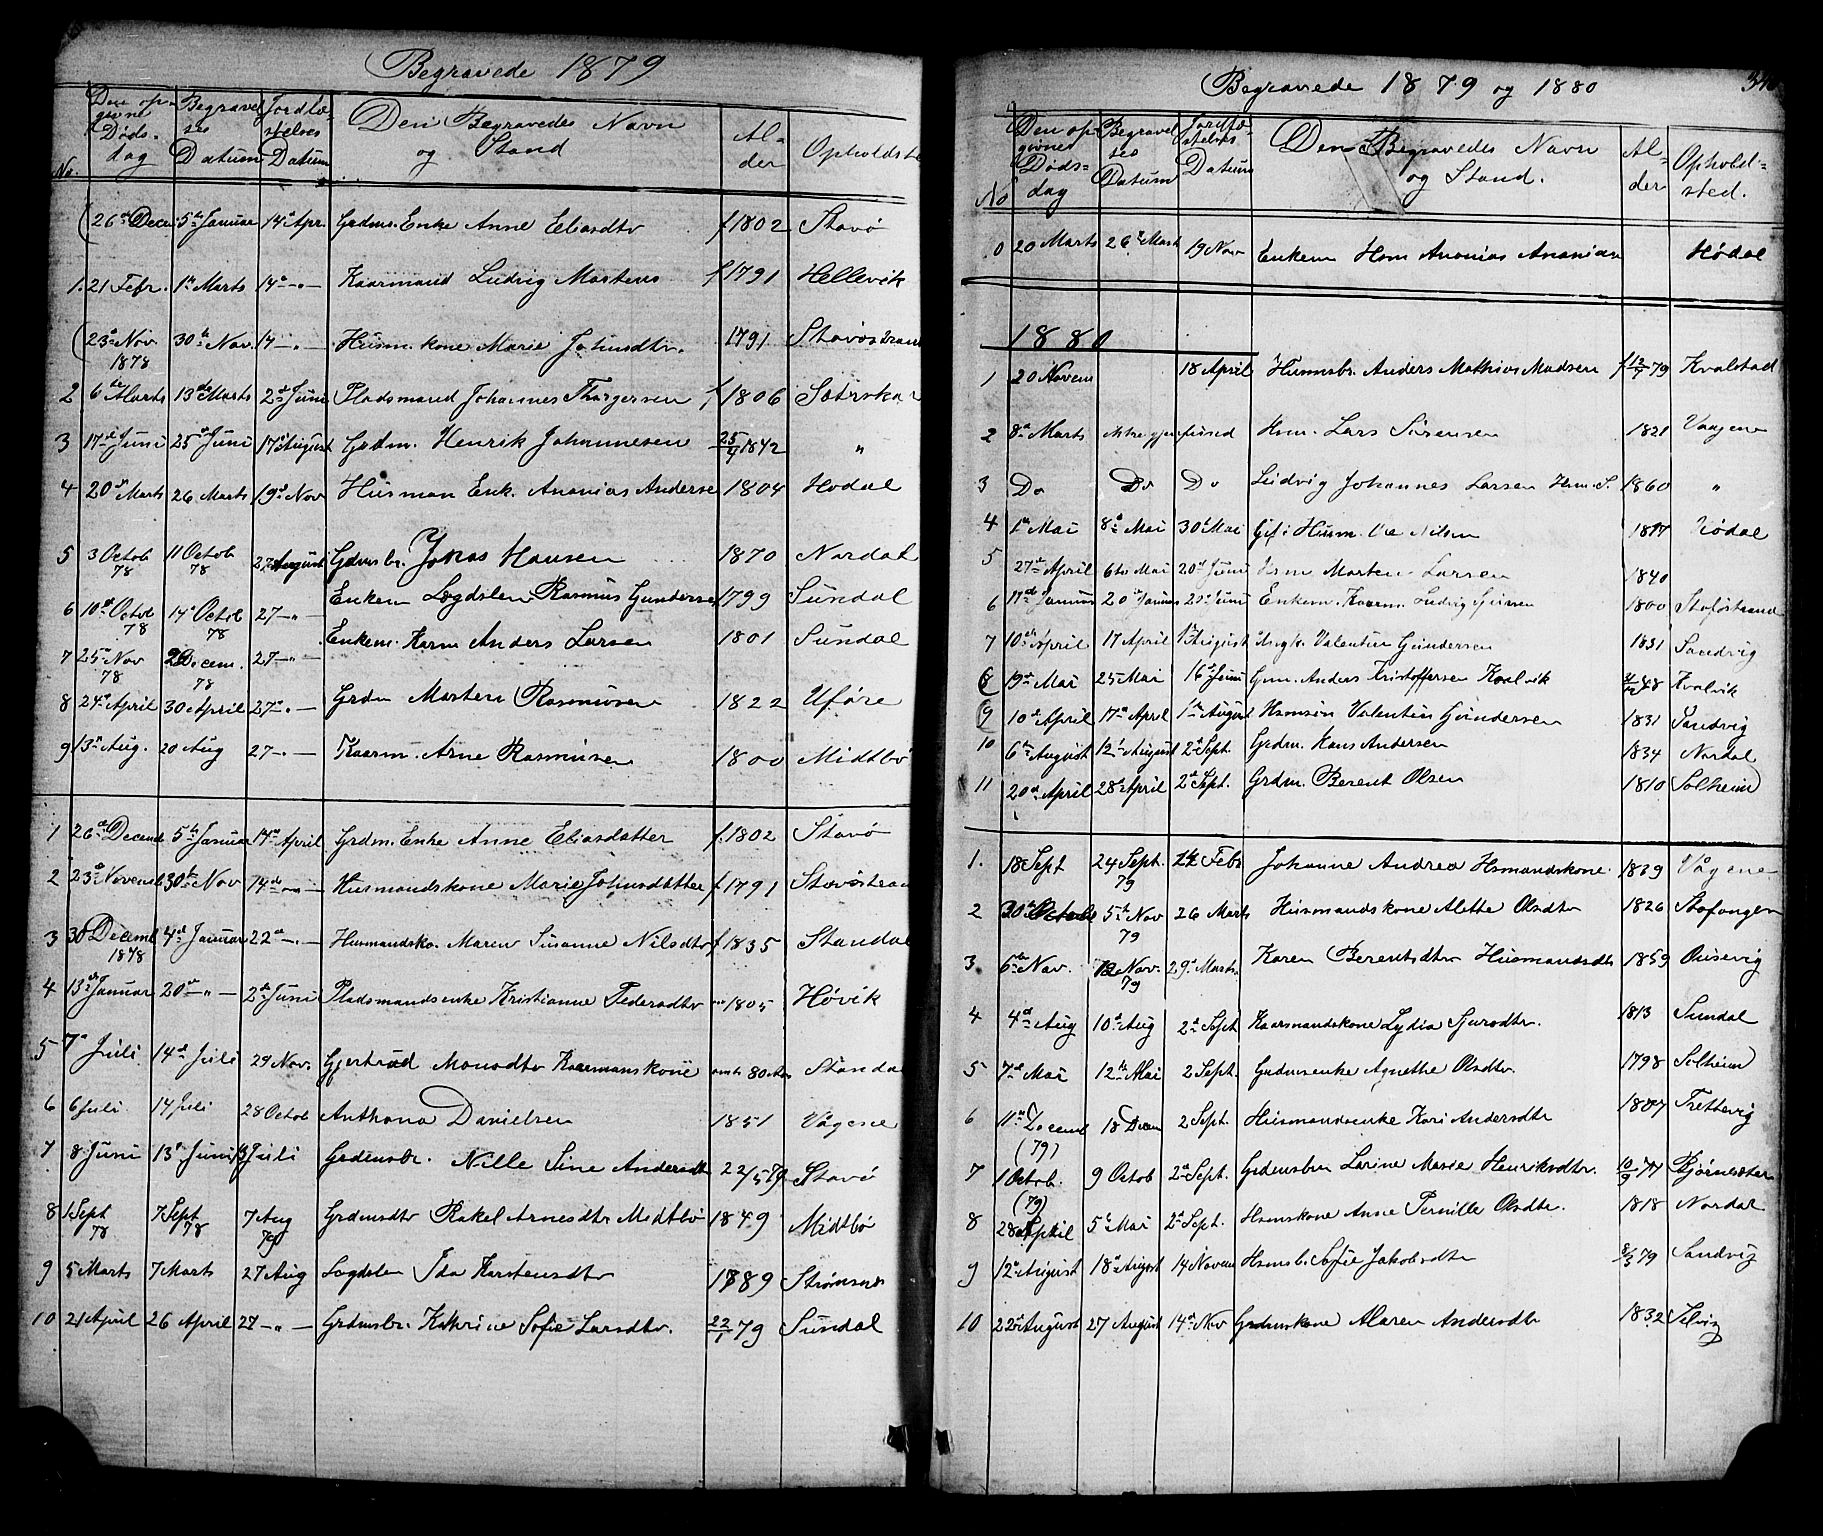 Begravede 1879
No. | Den opgivne Dødsdag | Begravelses Datum | Jordfæstelses Datum | Den Begravedes Navn og Stand | Alder | Opholdst
26de Decem | 5te Januar | 14de Apr. | Grdm. Enke Anne Eliasdtr | f. 1802 | Stavø
1. | 21 Febr. | 1te Marts | 14de -"- | Kaarmand Ludvig Mortens | f. 1791 | Hellevik
23de Nov 1878 | 30te Nov. | 14 -"- | Husm. kone Marie Johnsdtr. | 1791 | Stavøstrand
2 | 6te Marts | 13de Marts | 2de Juni | Pladsmand Johannes Thorgersen | f. 1806 | Sætrskar
3 | 17de Juni | 25de Juni | 17de August | Grdm. Henrik Johannesen | 25/4 1842 | "
4 | 20de Marts | 26 Marts | 19de Nov | Husman Enk. Ananias Anderse | 1804 | Hødal
5 | 3 Octob 78 | 11 Octob 78 | 27 August | Grdmsbr. Jonas Hansen | 1870 | Nordal
6 | 10de Octob 78 | 14de Octob 78 | 27 -"- | Enkem Lægdslem Rasmus Gunderse | 1799 | Sundal
7 | 25de Nov 78 | 2 Decem. 78 | 27 -"- | Enkem. Karm Anders Larsen | 1801 | Sundal
8 | 24de April | 30 April | 27de -"- | Grdm Morten Rasmusen | 1822 | Uføre
9 | 13de Aug. | 20 Aug | 27 -"- | Kaarm. Arne Rasmusen | 1800 | Midtbø
1 | 26de Decemb | 5te Januar | 14de April | Grdm. Enke Anne Eliasdatter | f. 1802 | Stavø
2 | 23de Novemb | 30te Nov | 14de -"- | Husmandskone Marie Johnsdatter | f. 1791 | Stavøstran
3 | 30 Decemb 1878 | 4de Januar | 22de -"- | Husmandsko. Maren Susanne Nilsdtr | f. 1835 | Standal
4 | 13de Januar | 20de -"- | 2de Juni | Pladsmandsenke Kristianne Pedersdtr | 1805 | Høvik
5 | 7de Juli | 14de Juli | 29 Nov. | Gjertrud Monsdtr Kaarmanskone | omtr 80 Aar | Standal
6 | 6 Juli | 14 Juli | 28 Octob | Anthona Danielsen | 1851 | Vågene
7 | 8 Juni | 13de Juni | 13 Juli | Grdmsdtr. Nille Sine Andersdtr | 22/5 79 | Stavø
8 | 1 Sept 78 | 7 Sept 78 | 7 Aug 79 | Grdmsdtr Rakel Arnesdtr Midtbø | 1849 | Midtbø
9 | 5 Marts | 7 Marts | 27 Aug | Lægdslem Ida Karstensdtr | 1789 | Strømsnes
10 | 21 April | 26 April | 27 -"- | Grdmsbr. Kathrine Sofie Larsdtr. | 22/1 79 | Sundal
Begravede 1879 og 1880
No | Den opgivnes Dødsdag | Begravelses Datum | Jordfæstelses Datum | Den Begravedes Navn og Stand. | Alder | Opholdsted.
0 | 20 Marts | 26de Mart | 19 Nov | Enkem Hsm Ananias Ananias | Hødal
1880
1 | 20 Novem | 18 April | Husmsbr. Anders Mathias Madsen | f. 12/7 79 | Kvalstad
2 | 8de Marts | ikke gjenfunnd | Hsm. Lars Sørensen | 1821 | Vaagene
3 | Do | Do | Do | Ludvig Johannes Larsen Hsm. S. | 1860 | "
4 | 1te Mai | 8de Mai | 30te Mai | Gift Husm. Ole Nilsen | 1817 | Hødal
5 | 27de April | 6te Mai | 20de Juni | Hsm Morten Larsen | 1840
6 | 17de Januar | 20de Januar | 20de Juni | Enkem. Kaarm. Ludvig | 1800 | Stoføstrand
7 | 10de April | 17 April | 1te August | Valentin Gundersen | 1831 | Sandvig
8 | 19de Mai | 25 Mai | 16de Juni | Gm. Anders Kristoffersen Kvalvik | 48 | Kvalvik
9 | 10de April | 17de April | 1te August | Hsmsøn Valentin Gundersen | 1831 | Sandvig
10 | 6te August | 12te August | 2de Sept. | Grdm. Hans Andersen | 1834 | Nordal
11 | 20de April | 28de April | 2de Sept. | Grdm. Berent Olsen | 1810 | Solheim
1. | 18 Sept | 24 Sept. 79 | 22 Febr | Johanne Andrea Hsmandskone | 1839 | Vågene
2 | 30te Octob | 5te Nov 79 | 26 Marts | Husmandskone Alette Olsdtr | 1826 | Stafangen
3 | 6te Nov. | 12 Nov. 79 | 29de Marts | Karen Berentsdtr Husmandsdtr | 1859 | Ousevig
4 | 4de Aug | 10de Aug | 2de Sept | Kaarmandskone Lydia Sjursdtr. | 1813 | Sundal
5 | 7de Mai | 12te Mai | 2 Sept. | Grdmsenke Agnethe Olsdtr | 1798 | Solheim
6 | 11de Decemb (79) | 18 Decem | 2 Sept. | Husmandsenke Kari Andersdtr | 1804 | Trettevig
7 | 1 Octob. (79) | 9 Octob | 2de Sept. | Grdmsbrn Larine Marie Henriksdtr. | 10/9 77 | Bjørnesæter
8 | 28de April | 5te Mai | 2de Sept. | Hsmskone Anne Pernille Olsdtr | 1818 | Nordal
9 | 12te August | 18de August | 14 Novem | Hsmsb. Sofie Jakobsdtr | 8/3 79 | Sandvig
10 | 22de August | 27 August | 14de Nov | Grdmskone Maren Andersdtr | 1832 | Selvig